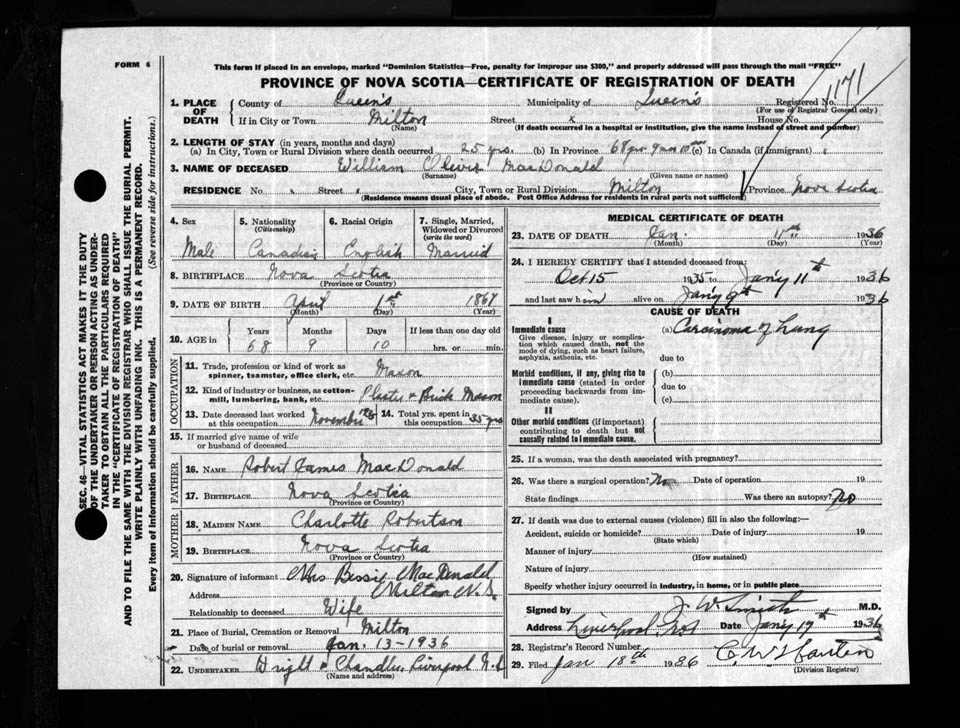 FORM 6
This form if placed in an envelope, marked "Dominion Statistics—Free, penalty for improper use $300," and properly addressed will pass through the mail "FREE"
PROVINCE OF NOVA SCOTIA—CERTIFICATE OF REGISTRATION OF DEATH
1171
1. PLACE OF DEATH County of Queen's Municipality of Queen's Registered No.
(For use of Registrar General only)
If in City or Town Milton Street x House No.
(Name) (If death occurred in a hospital or institution, give the name instead of street and number)
2. LENGTH OF STAY (in years, months and days)
(a) In City, Town or Rural Division where death occurred 25 yrs. (b) In Province 68 yrs 9 mos 10 (c) In Canada (if immigrant)
3. NAME OF DECEASED William MacDonald
(Surname) (Given name or names)
RESIDENCE No. Street City, Town or Rural Division Milton Province Nova Scotia
(Residence means usual place of abode. Post Office Address for residents in rural parts not sufficient)
4. Sex 5. Nationality (Citizenship) 6. Racial Origin 7. Single, Married, Widowed or Divorced (write the word)
Male Canadian English Married
8. BIRTHPLACE Nova Scotia
(Province or Country)
9. DATE OF BIRTH April 1st 1867
(Month) (Day) (Year)
10. AGE in Years Months Days If less than one day old
68 9 10 hrs. or min.
OCCUPATION
11. Trade, profession or kind of work as spinner, teamster, office clerk, etc. Mason
12. Kind of industry or business, as cotton-mill, lumbering, bank, etc. Plaster & Brick Mason
13. Date deceased last worked at this occupation November 14. Total yrs. spent in this occupation 35 yrs
15. If married give name of wife or husband of deceased
FATHER
16. NAME Robert James MacDonald
17. BIRTHPLACE Nova Scotia
(Province or Country)
MOTHER
18. MAIDEN NAME Charlotte Robertson
19. BIRTHPLACE Nova Scotia
(Province or Country)
20. Signature of informant Mrs Bessie MacDonald
Address Milton N.S.
Relationship to deceased Wife
21. Place of Burial, Cremation or Removal Milton
Date of burial or removal Jan. 13-1936
22. UNDERTAKER Wright & Chandler Liverpool N.S
(Name and address)
MEDICAL CERTIFICATE OF DEATH
23. DATE OF DEATH Jan. 11th 1936
(Month) (Day) (Year)
24. I HEREBY CERTIFY that I attended deceased from:
Oct 15 1935 to Jan'y 11th 1936
and last saw him alive on Jan'y 9th 1936
CAUSE OF DEATH
I
Immediate cause
Give disease, injury or complication which caused death, not the mode of dying, such as heart failure, asphyxia, asthenia, etc.
(a) Carcinoma of Lung
due to
Morbid conditions, if any, giving rise to immediate cause (stated in order proceeding backwards from immediate cause)
(b)
due to
(c)
II
Other morbid conditions (if important) contributing to death but not causally related to immediate cause.
25. If a woman, was the death associated with pregnancy?
26. Was there a surgical operation? No Date of operation 19
State findings Was there an autopsy? No
27. If death was due to external causes (violence) fill in also the following:—
Accident, suicide or homicide? Date of injury 19
(State which)
Manner of injury
(How sustained)
Nature of injury
Specify whether injury occurred in industry, in home, or in public place
Signed by J. W. Smith M.D.
Address Liverpool Date Jan'y 17th 1936
28. Registrar's Record Number
29. Filed Jan 18th 1936
(Division Registrar)
SEC. 46—VITAL STATISTICS ACT MAKES IT THE DUTY
OF THE UNDERTAKER OR PERSON ACTING AS UNDER-
TAKER TO OBTAIN ALL THE PARTICULARS REQUIRED
IN THE "CERTIFICATE OF REGISTRATION OF DEATH"
AND TO FILE THE SAME WITH THE DIVISION REGISTRAR WHO SHALL ISSUE THE BURIAL PERMIT.
WRITE PLAINLY WITH UNFADING INK. THIS IS A PERMANENT RECORD.
Every item of Information should be carefully supplied. (See reverse side for instructions.)